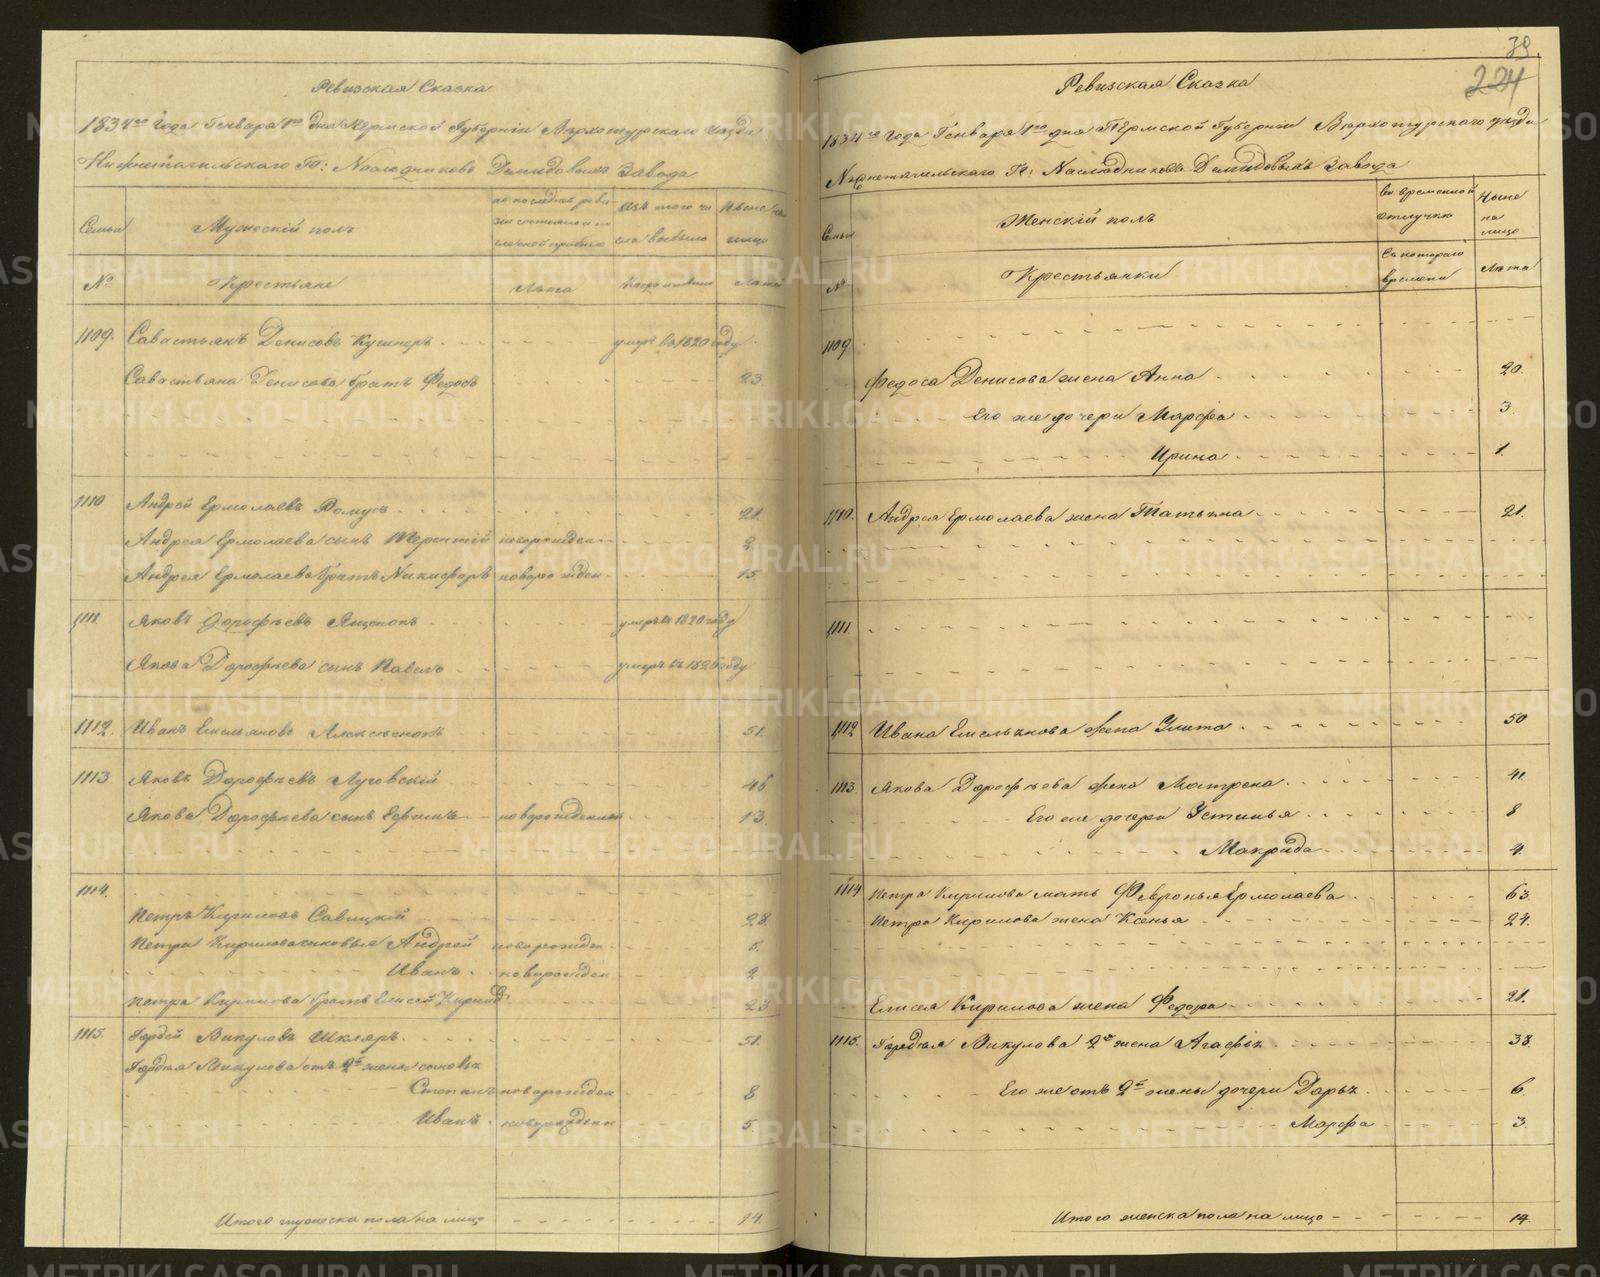 39.
224
Ревизская Сказка
1834го года Генваря 1го дня Пермской Губерніи Верхотурскаго уезда
Нижнетагильскаго Г: Наследниковъ Демидовыхъ Завода
Семьи
Мужескій полъ
по последней ревизіи состояло и
Изъ того числа выбыло
Ныне на лицо
№
Крестьяне
Лета
Когда именно
Лета
1109. Савастьянъ Денисовъ Кушнеръ умеръ въ 1820 году
Савастьяна Денисова братъ Федосъ 23.
1110 Андрей Ермолаевъ 21.
Андрея Ермолаева сынъ Терентій новорожден. 2.
Андрея Ермолаева братъ Никифоръ новорожден. 15.
1111. Яковъ Дорофеевъ умеръ въ 1820 году
Якова Дорофеева сынъ Павелъ умеръ въ 1826 году
1112. Иванъ Емельяновъ 51.
1113. Яковъ Дорофеевъ Луговскій 46
Якова Дорофеева сынъ Ефимъ новорожденный 13.
1114.
Петръ Кириловъ Савицкій 28.
Петра Кирилова сыновья Андрей новорожден. 5.
Иванъ новорожден 2
Петра Кирилова братъ Елисей Кириловъ 23
1115. Гордей Викуловъ Шкляръ 51.
Гордея Викулова отъ 2й жены сыновья
Степанъ новорожден 8
Иванъ новорожден 5.
Итого мужеска пола на лицо 14.
Ревизская Сказка
1834го года Генваря 1го дня Пермской Губерніи Верхотурскаго уезда
Нижнетагильскаго Г: Наследниковъ Демидовыхъ Завода
Семьи
Женскій полъ
Во временной отлучке
Ныне на лицо
№
Крестьянки
Съ котораго времени
Лета
1109
Федоса Денисова жена Анна 20.
Его же дочери Марфа 3.
Ирина 1.
1110. Андрея Ермолаева жена Татьяна 21.
1111.
1112 Ивана Емельянова жена Улита 50
1113. Якова Дорофеева жена Матрена 41.
Его же дочери Устинья 8
Макрида 4.
1114 Петра Кирилова мать Февронья Ермолаева 63.
Петра Кирилова жена Ксенья 24.
Елисея Кирилова жена Федора 21.
1115. Гордея Викулова 2я жена Агафья 38.
Его же отъ 2й жены дочери Дарья 6.
Марфа 3.
Итого женска пола на лицо 14.
METRIKI.GASO-URAL.RU